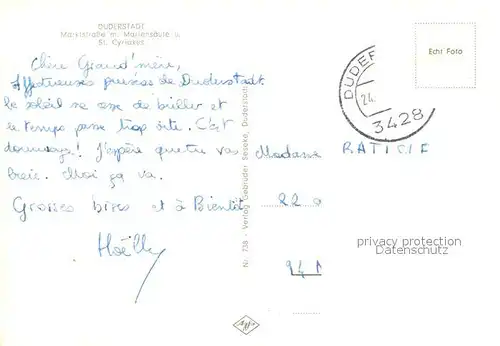 DUDERSTADT
Marktstraße m. Mariensäule u.
St. Cyriakus
Chère Grand'mère,
Affectueuses pensées de Duderstadt.
Le soleil ne cesse de briller et
le temps passe trop vite. C'est
dommage! J'espère que tu vas
bien. Moi ça va.
Grosses bises et à Bientôt
Nr. 738 - Verlag Gebrüder Seseke, Duderstadt
Echt Foto
24.
3428
Madame
22
94
privacy protection
Datenschutz
Agfa